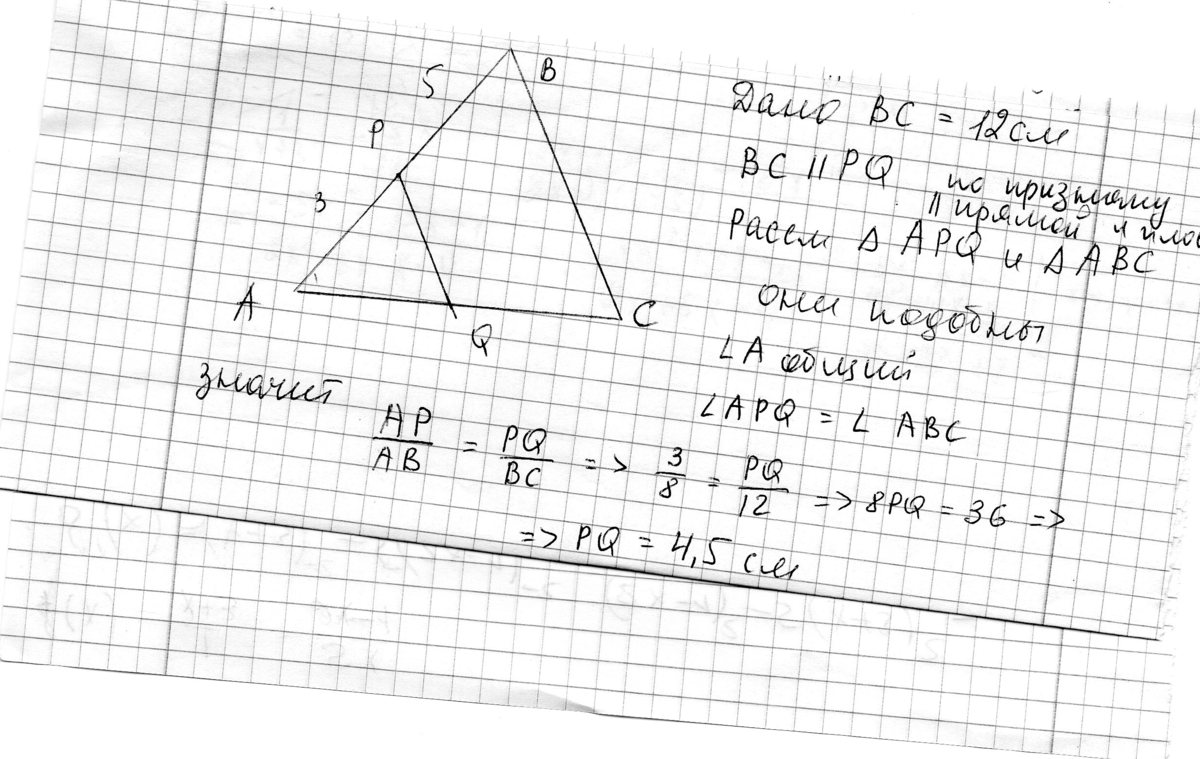 B
5
P
3
A
Q
C
Дано BC = 12 см
BC || PQ по признаку
|| прямой и
Рассм Δ APQ и Δ ABC
они подобны
∠A общий
∠APQ = ∠ABC
значит
AP/AB = PQ/BC => 3/8 = PQ/12 => 8PQ = 36 =>
=> PQ = 4,5 см